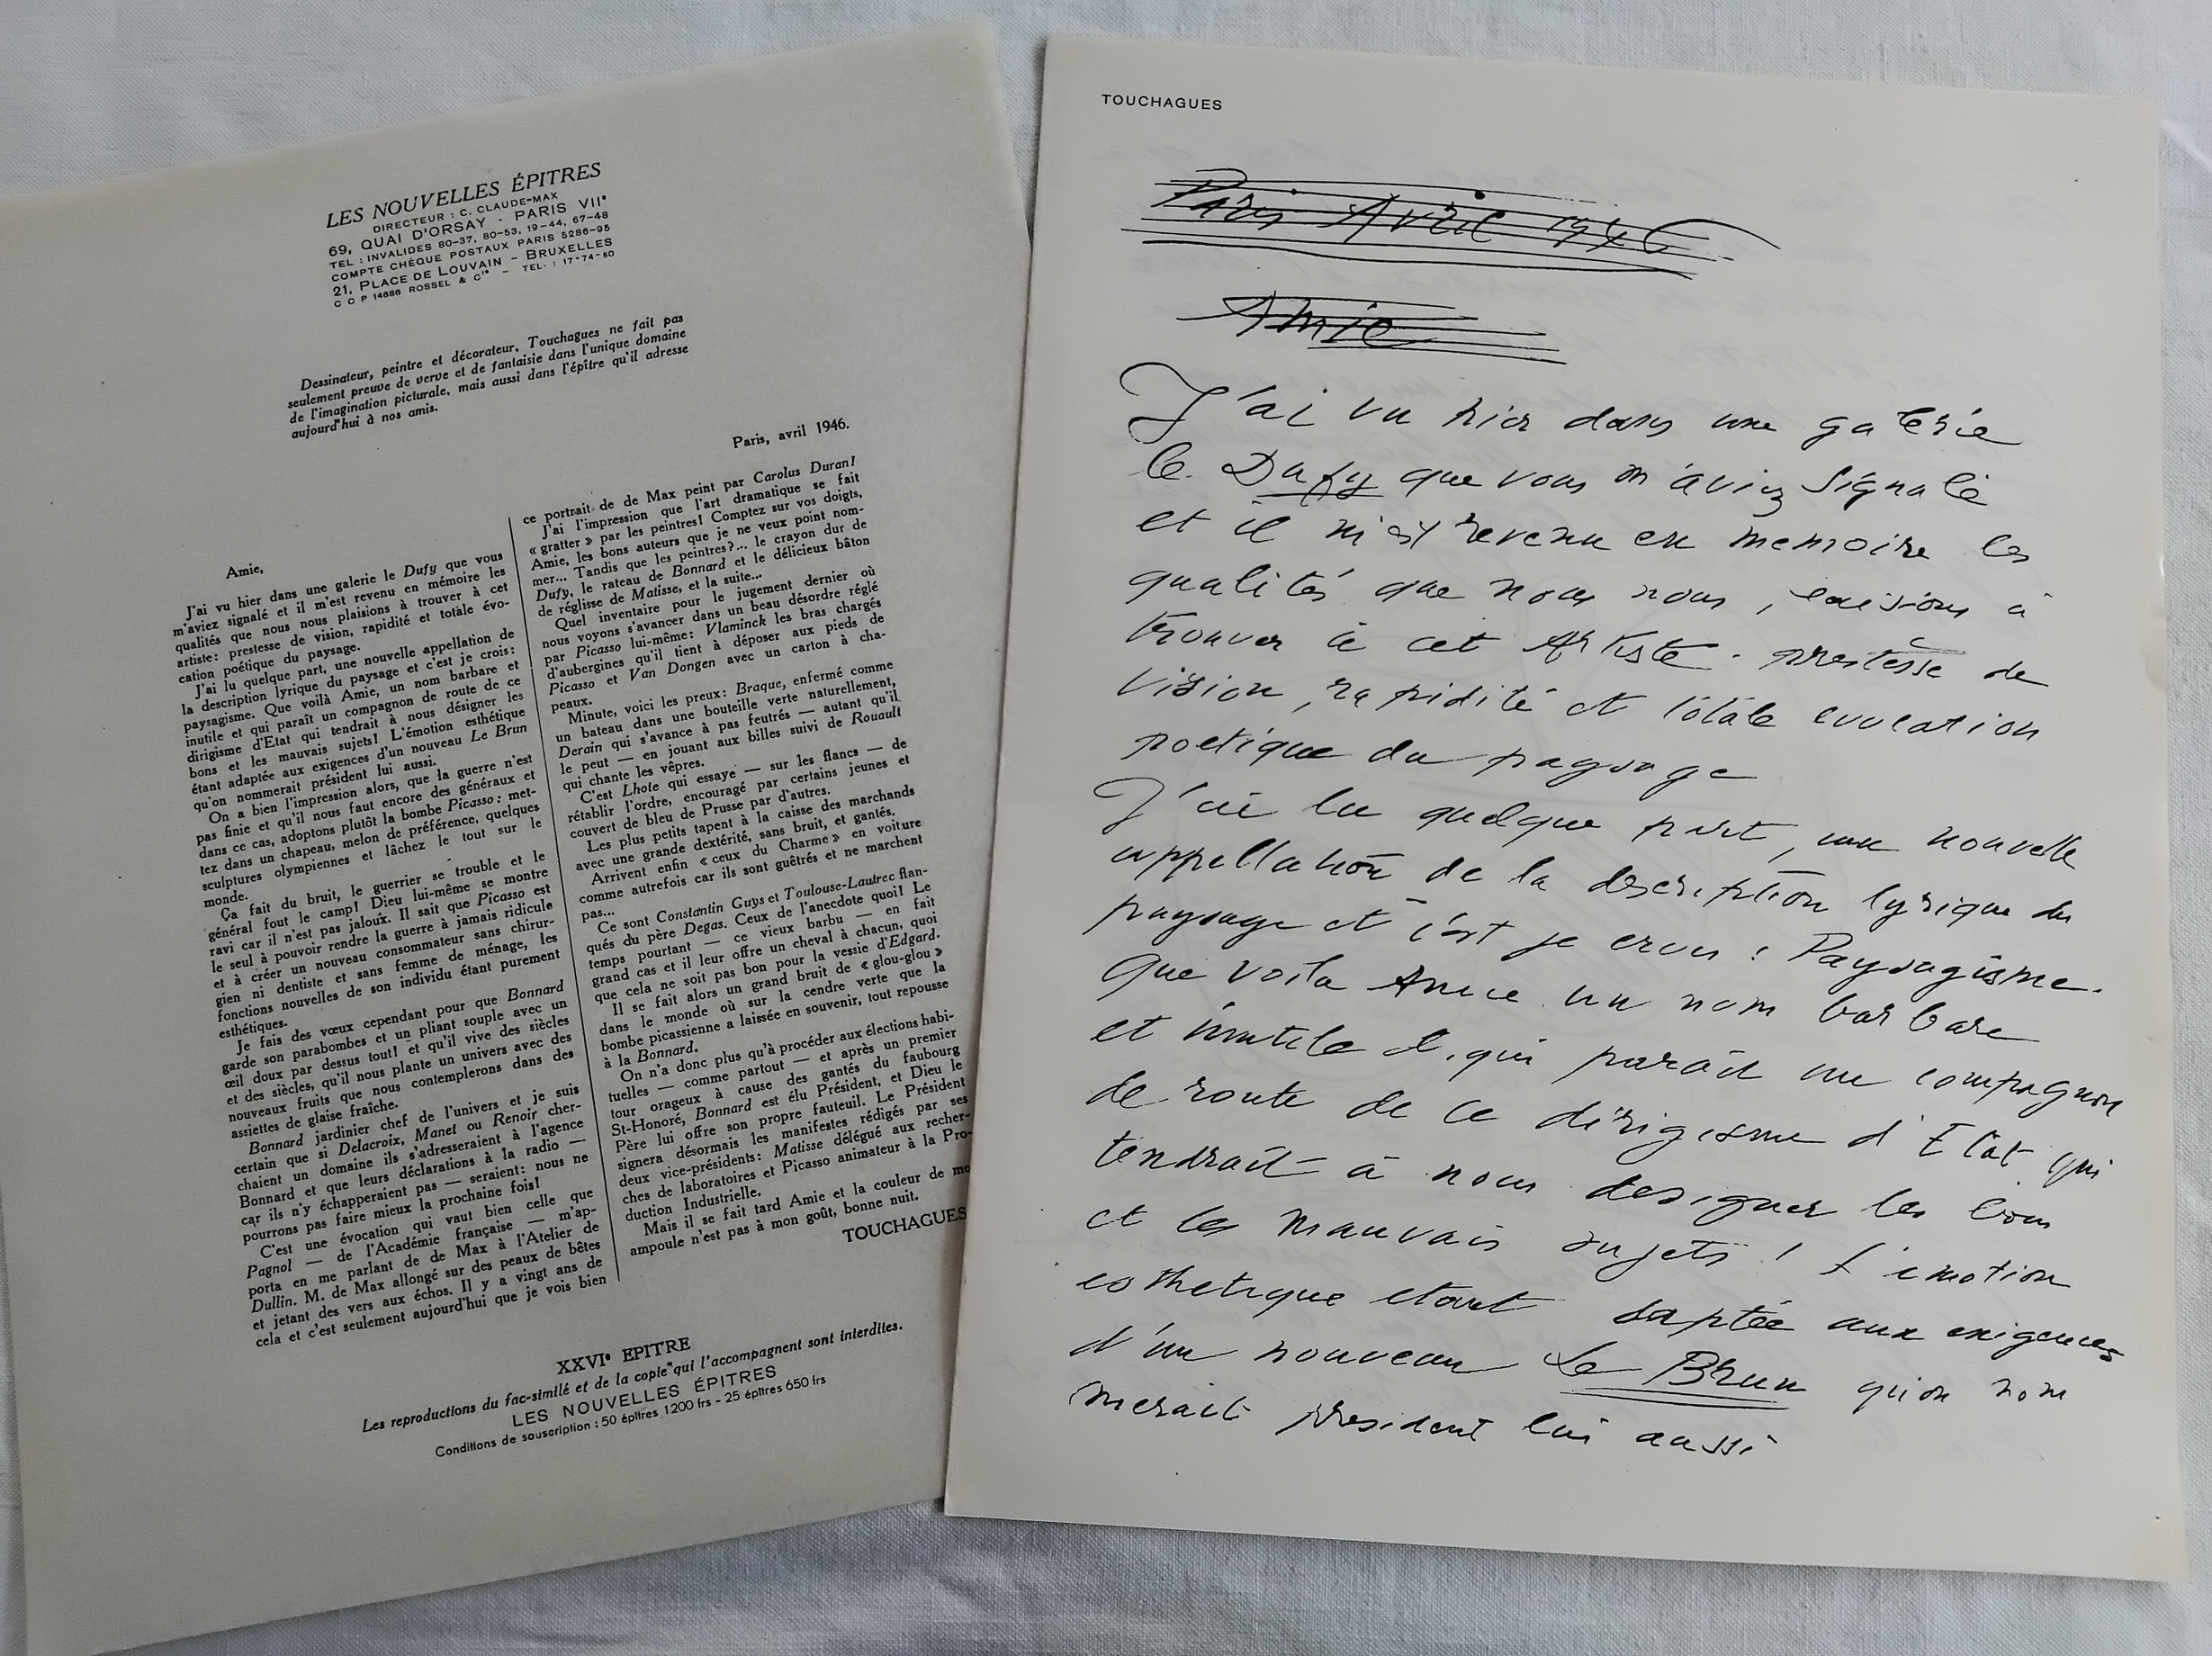 LES NOUVELLES ÉPITRES
DIRECTEUR : C. CLAUDE-MAX
69, QUAI D'ORSAY - PARIS VIIe
TEL : INVALIDES 80-37, 80-53, 19-44, 67-48
COMPTE CHÈQUE POSTAUX PARIS 5286-95
21, PLACE DE LOUVAIN - BRUXELLES
C C P 14686 ROSSEL & Cie - TEL. : 17-74-60
Dessinateur, peintre et décorateur, Touchagues ne fait pas
seulement preuve de verve et de fantaisie dans l'unique domaine
de l'imagination picturale, mais aussi dans l'épître qu'il adresse
aujourd'hui à nos amis.
Paris, avril 1946.
Amie,
J'ai vu hier dans une galerie le Dufy que vous
m'aviez signalé et il m'est revenu en mémoire les
qualités que nous nous plaisions à trouver à cet
artiste: prestesse de vision, rapidité et totale évo-
cation poétique du paysage.
J'ai lu quelque part, une nouvelle appellation de
la description lyrique du paysage et c'est je crois:
paysagisme. Que voilà Amie, un nom barbare et
inutile et qui paraît un compagnon de route de ce
dirigisme d'Etat qui tendrait à nous désigner les
bons et les mauvais sujets! L'émotion esthétique
étant adaptée aux exigences d'un nouveau Le Brun
qu'on nommerait président lui aussi.
On a bien l'impression alors, que la guerre n'est
pas finie et qu'il nous faut encore des généraux et
dans ce cas, adoptons plutôt la bombe Picasso: met-
tez dans un chapeau, melon de préférence, quelques
sculptures olympiennes et lâchez le tout sur le
monde.
Ça fait du bruit, le guerrier se trouble et le
général fout le camp! Dieu lui-même se montre
ravi car il n'est pas jaloux. Il sait que Picasso est
le seul à pouvoir rendre la guerre à jamais ridicule
et à créer un nouveau consommateur sans chirur-
gien ni dentiste et sans femme de ménage, les
fonctions nouvelles de son individu étant purement
esthétiques.
Je fais des vœux cependant pour que Bonnard
garde son parabombes et un pliant souple avec un
œil doux par dessus tout! et qu'il vive des siècles
et des siècles, qu'il nous plante un univers avec des
nouveaux fruits que nous contemplerons dans des
assiettes de glaise fraîche.
Bonnard jardinier chef de l'univers et je suis
certain que si Delacroix, Manet ou Renoir cher-
chaient un domaine ils s'adresseraient à l'agence
Bonnard et que leurs déclarations à la radio —
car ils n'y échapperaient pas — seraient: nous ne
pourrons pas faire mieux la prochaine fois!
C'est une évocation qui vaut bien celle que
Pagnol — de l'Académie française — m'ap-
porta en me parlant de de Max à l'Atelier de
Dullin. M. de Max allongé sur des peaux de bêtes
et jetant des vers aux échos. Il y a vingt ans de
cela et c'est seulement aujourd'hui que je vois bien
ce portrait de de Max peint par Carolus Duran!
J'ai l'impression que l'art dramatique se fait
« gratter » par les peintres! Comptez sur vos doigts,
Amie, les bons auteurs que je ne veux point nom-
mer... Tandis que les peintres?... le crayon dur de
Dufy, le rateau de Bonnard et le délicieux bâton
de réglisse de Matisse, et la suite...
Quel inventaire pour le jugement dernier où
nous voyons s'avancer dans un beau désordre réglé
par Picasso lui-même: Vlaminck les bras chargés
d'aubergines qu'il tient à déposer aux pieds de
Picasso et Van Dongen avec un carton à cha-
peaux.
Minute, voici les preux: Braque, enfermé comme
un bateau dans une bouteille verte naturellement,
Derain qui s'avance à pas feutrés — autant qu'il
le peut — en jouant aux billes suivi de Rouault
qui chante les vêpres.
C'est Lhote qui essaye — sur les flancs — de
rétablir l'ordre, encouragé par certains jeunes et
couvert de bleu de Prusse par d'autres.
Les plus petits tapent à la caisse des marchands
avec une grande dextérité, sans bruit, et gantés.
Arrivent enfin « ceux du Charme » en voiture
comme autrefois car ils sont guêtrés et ne marchent
pas...
Ce sont Constantin Guys et Toulouse-Lautrec flan-
qués du père Degas. Ceux de l'anecdote quoi! Le
temps pourtant — ce vieux barbu — en fait
grand cas et il leur offre un cheval à chacun, quoi
que cela ne soit pas bon pour la vessie d'Edgard.
Il se fait alors un grand bruit de « glou-glou »
dans le monde où sur la cendre verte que la
bombe picassienne a laissée en souvenir, tout repousse
à la Bonnard.
On n'a donc plus qu'à procéder aux élections habi-
tuelles — comme partout — et après un premier
tour orageux à cause des gantés du faubourg
St-Honoré, Bonnard est élu Président, et Dieu le
Père lui offre son propre fauteuil. Le Président
signera désormais les manifestes rédigés par ses
deux vice-présidents: Matisse délégué aux recher-
ches de laboratoires et Picasso animateur à la Pro-
duction Industrielle.
Mais il se fait tard Amie et la couleur de mo
ampoule n'est pas à mon goût, bonne nuit.
TOUCHAGUES
XXVIe EPITRE
Les reproductions du fac-similé et de la copie qui l'accompagnent sont interdites.
LES NOUVELLES ÉPITRES
Conditions de souscription : 50 épîtres 1200 frs - 25 épîtres 650 frs
TOUCHAGUES
Paris Avril 1946
Amie
J'ai vu hier dans une galerie
le Dufy que vous m'aviez signalé
et il m'est revenu en memoire les
qualités que nous nous plaisions à
trouver à cet Artiste. prestesse de
vision, rapidité et totale evocation
poetique du paysage
J'ai lu quelque part, une nouvelle
appellation de la description lyrique du
paysage et c'est je crois : Paysagisme.
Que voila Amie un nom barbare
et inutile et qui parait un compagnon
de route de ce dirigisme d'Etat qui
tendrait à nous designer les bons
et les mauvais sujets ! L'emotion
esthetique etant adaptée aux exigences
d'un nouveau Le Brun qu'on nom
merait president lui aussi